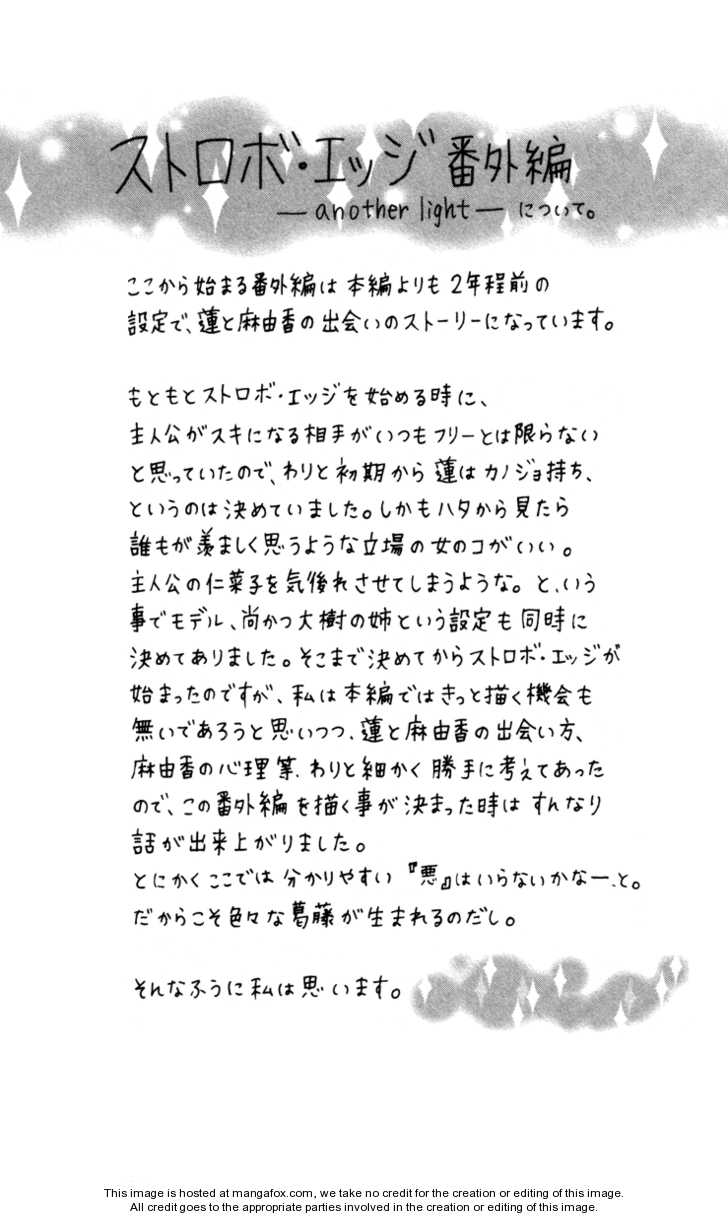 ストロボ・エッジ番外編
— another light — について。
ここから始まる番外編は本編よりも2年程前の
設定で、蓮と麻由香の出会いのストーリーになっています。
もともとストロボ・エッジを始める時に、
主人公がスキになる相手がいつもフリーとは限らない
と思っていたので、わりと初期から蓮はカノジョ持ち、
というのは決めていました。しかもハタから見たら
誰もが羨ましく思うような立場の女のコがいい。
主人公の仁菜子を気後れさせてしまうような。と、いう
事でモデル、尚かつ大樹の姉という設定も同時に
決めてありました。そこまで決めてからストロボ・エッジが
始まったのですが、私は本編ではきっと描く機会も
無いであろうと思いつつ、蓮と麻由香の出会い方、
麻由香の心理等、わりと細かく勝手に考えてあった
ので、この番外編を描く事が決まった時はすんなり
話が出来上がりました。
とにかくここでは分かりやすい『悪』はいらないかなー、と。
だからこそ色々な葛藤が生まれるのだし。
そんなふうに私は思います。
This image is hosted at mangafox.com, we take no credit for the creation or editing of this image.
All credit goes to the appropriate parties involved in the creation or editing of this image.